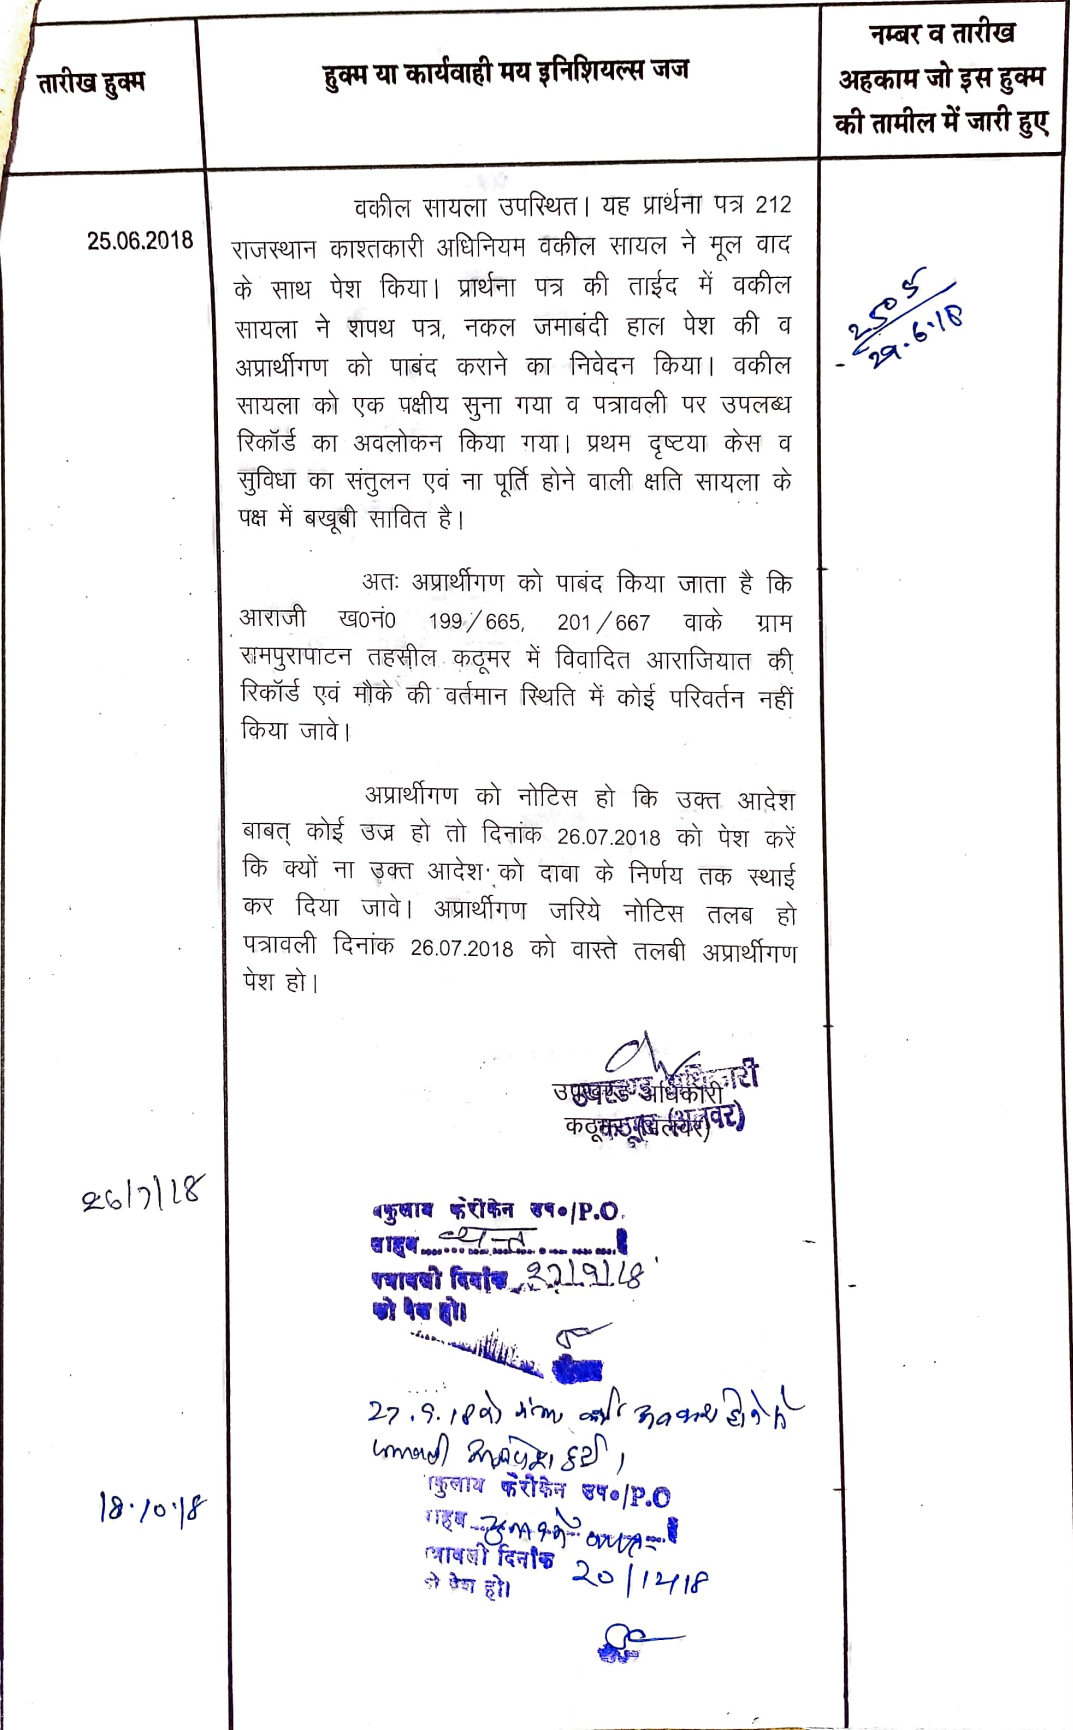 तारीख हुक्म
हुक्म या कार्यवाही मय इनिशियल्स जज
नम्बर व तारीख
अहकाम जो इस हुक्म
की तामील में जारी हुए
25.06.2018
वकील सायला उपस्थित। यह प्रार्थना पत्र 212
राजस्थान काश्तकारी अधिनियम वकील सायल ने मूल वाद
के साथ पेश किया। प्रार्थना पत्र की ताईद में वकील
सायला ने शपथ पत्र, नकल जमाबंदी हाल पेश की व
अप्रार्थीगण को पाबंद कराने का निवेदन किया। वकील
सायला को एक पक्षीय सुना गया व पत्रावली पर उपलब्ध
रिकॉर्ड का अवलोकन किया गया। प्रथम दृष्टया केस व
सुविधा का संतुलन एवं ना पूर्ति होने वाली क्षति सायला के
पक्ष में बखूबी सावित है।
2505
29.6.18
अतः अप्रार्थीगण को पाबंद किया जाता है कि
आराजी ख0नं0 199/665, 201/667 वाके ग्राम
रामपुरापाटन तहसील कठूमर में विवादित आराजियात की
रिकॉर्ड एवं मौके की वर्तमान स्थिति में कोई परिवर्तन नहीं
किया जावे।
अप्रार्थीगण को नोटिस हो कि उक्त आदेश
बाबत् कोई उज्र हो तो दिनांक 26.07.2018 को पेश करें
कि क्यों ना उक्त आदेश को दावा के निर्णय तक स्थाई
कर दिया जावे। अप्रार्थीगण जरिये नोटिस तलब हो
पत्रावली दिनांक 26.07.2018 को वास्ते तलबी अप्रार्थीगण
पेश हो।
उपखण्ड अधिकारी
कठूमर (अलवर)
26/7/18
वकुलाय फेरीकेन उप०/P.O.
साहब
पत्रावली दिनांक 27/9/18
को पेश हो।
27.9.18 को
पत्रावली
18.10.18
वकुलाय फेरीकेन उप०/P.O
साहब
पत्रावली दिनांक 20/12/18
को पेश हो।